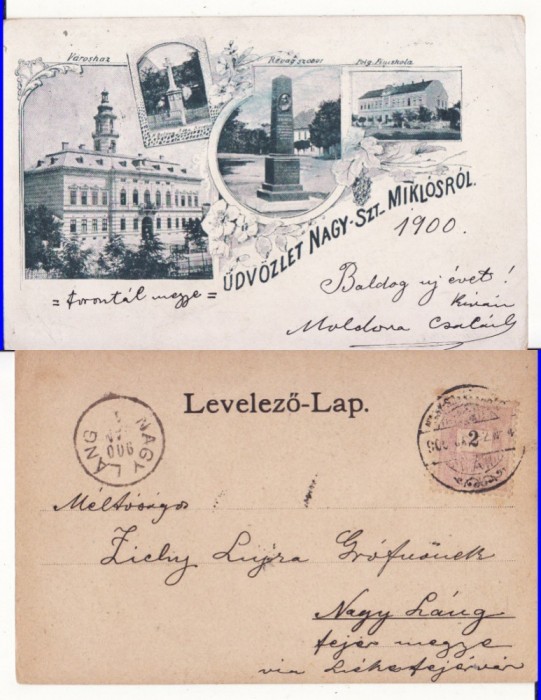 Városház
Révay szobor
Polg. Fiuiskola
ÜDVÖZLET NAGY-SZT. MIKLÓSRÓL.
1900.
= torontál megye =
Boldog uj évet!
kiván
Moldova
Levelező-Lap.
NAGY LÁNG
900
2
Méltóságos
Zichy Lujza Grófnőnek
Nagy Láng
fejér megye
via